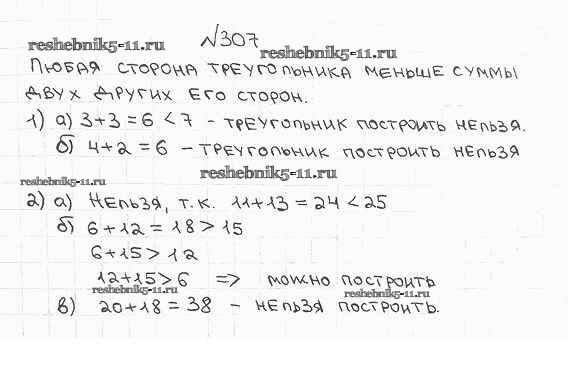 №307
reshebnik5-11.ru
reshebnik5-11.ru
Любая сторона треугольника меньше суммы
двух других его сторон.
1) а) 3+3=6<7 - треугольник построить нельзя.
б) 4+2=6 - треугольник построить нельзя
reshebnik5-11.ru
reshebnik5-11.ru
2) а) Нельзя, т.к. 11+13=24<25
б) 6+12=18>15
6+15>12
12+15>6 => можно построить
reshebnik5-11.ru
reshebnik5-11.ru
в) 20+18=38 - нельзя построить.